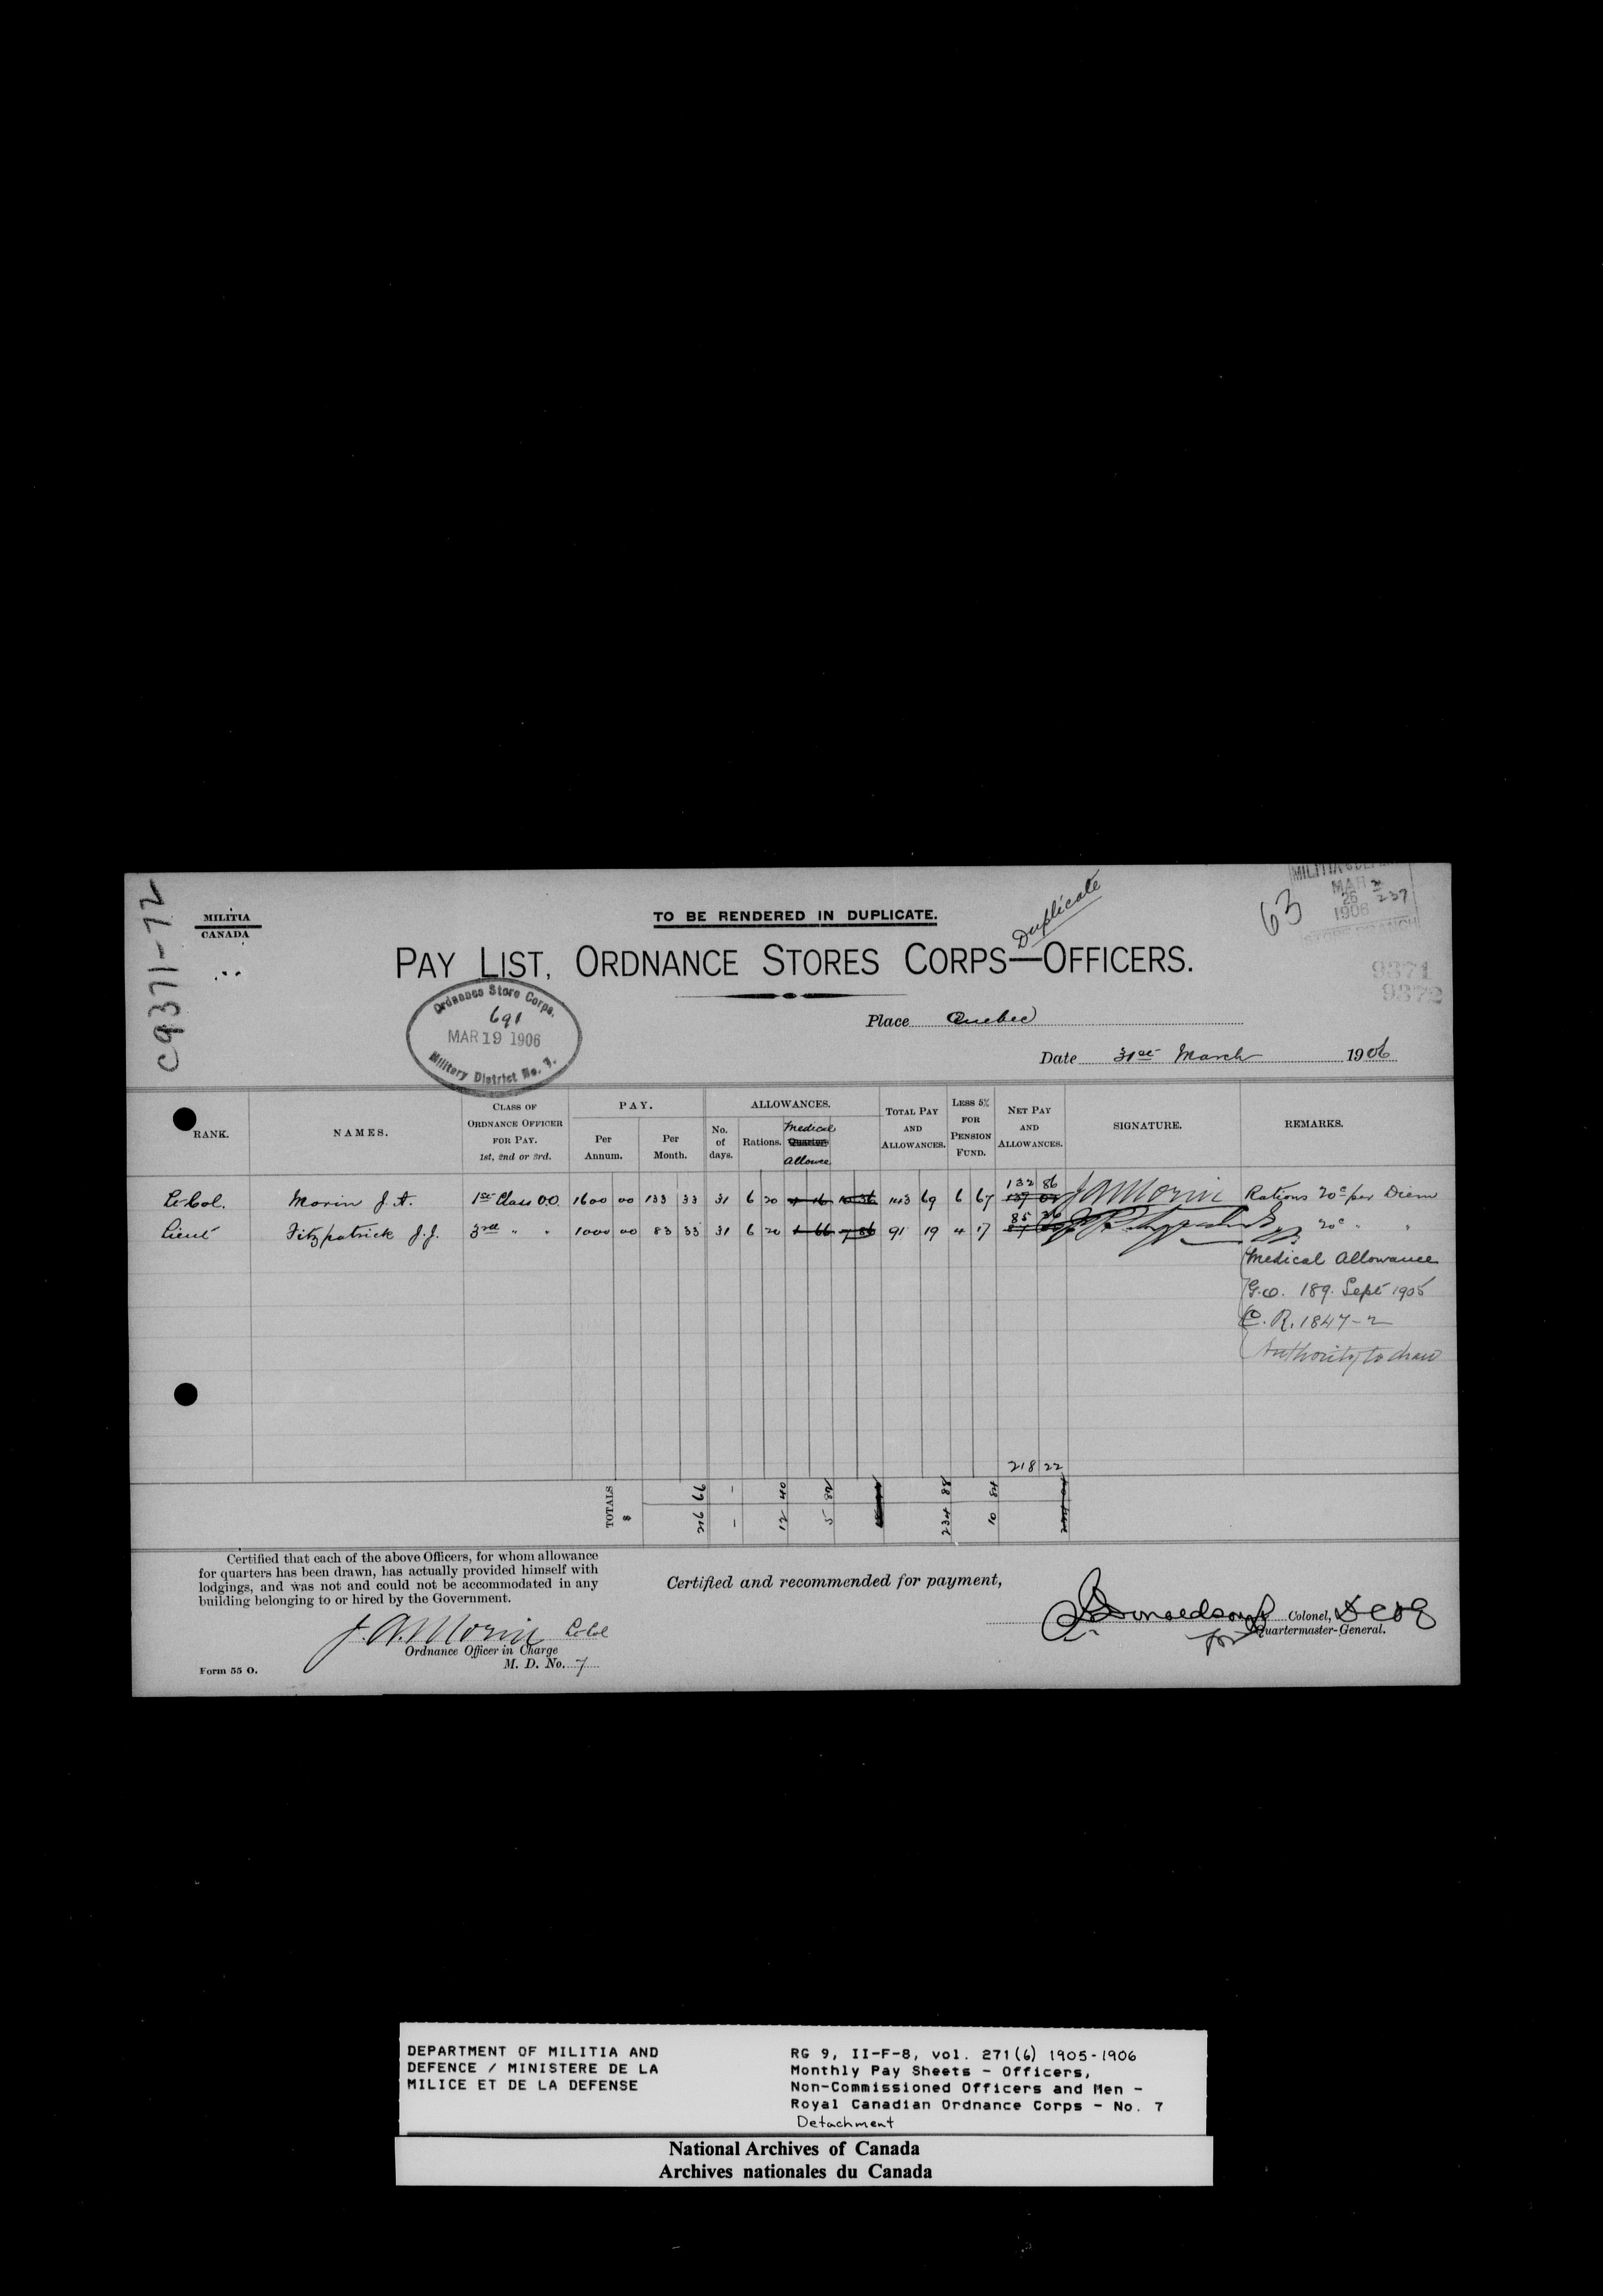 C9371-72
MILITIA
CANADA
TO BE RENDERED IN DUPLICATE.
Duplicate
63
MAR
26
1906
237
9371
9372
PAY LIST, ORDNANCE STORES CORPS—OFFICERS.
Ordnance Store Corps.
691
MAR 19 1906
Military District No. 7.
Place Quebec
Date 31st March 1906
RANK. NAMES. CLASS OF ORDNANCE OFFICER FOR PAY. 1st, 2nd or 3rd. PAY. Per Annum. Per Month. ALLOWANCES. No. of days. Rations. Medical Quarter Allowce TOTAL PAY AND ALLOWANCES. LESS 5% FOR PENSION FUND. NET PAY AND ALLOWANCES. SIGNATURE. REMARKS.
132 86
Lt-Col. Morin J. A. 1st Class O.O. 1600 00 133 33 31 6 20 4 16 10 36 143 69 6 67 137 02 J A Morin Rations 20c per Diem
85 36
Lieut Fitzpatrick J. J. 3rd " " 1000 00 83 33 31 6 20 1 66 7 86 91 19 4 17 J J Fitzpatrick " 20c " "
Medical Allowance
G.O. 189. Sept 1905
C. R. 1847-2
Authority to draw
218 22
TOTALS $ 216 66 - - 12 40 5 82 234 88 10 84
Certified that each of the above Officers, for whom allowance
for quarters has been drawn, has actually provided himself with
lodgings, and was not and could not be accommodated in any
building belonging to or hired by the Government.
Certified and recommended for payment,
J. A. Morin Lt-Col
Ordnance Officer in Charge
M. D. No. 7
Donaldson Colonel,
for Quartermaster-General.
Form 55 O.
DEPARTMENT OF MILITIA AND
DEFENCE / MINISTERE DE LA
MILICE ET DE LA DEFENSE
RG 9, II-F-8, vol. 271(6) 1905-1906
Monthly Pay Sheets - Officers,
Non-Commissioned Officers and Men -
Royal Canadian Ordnance Corps - No. 7
Detachment
National Archives of Canada
Archives nationales du Canada